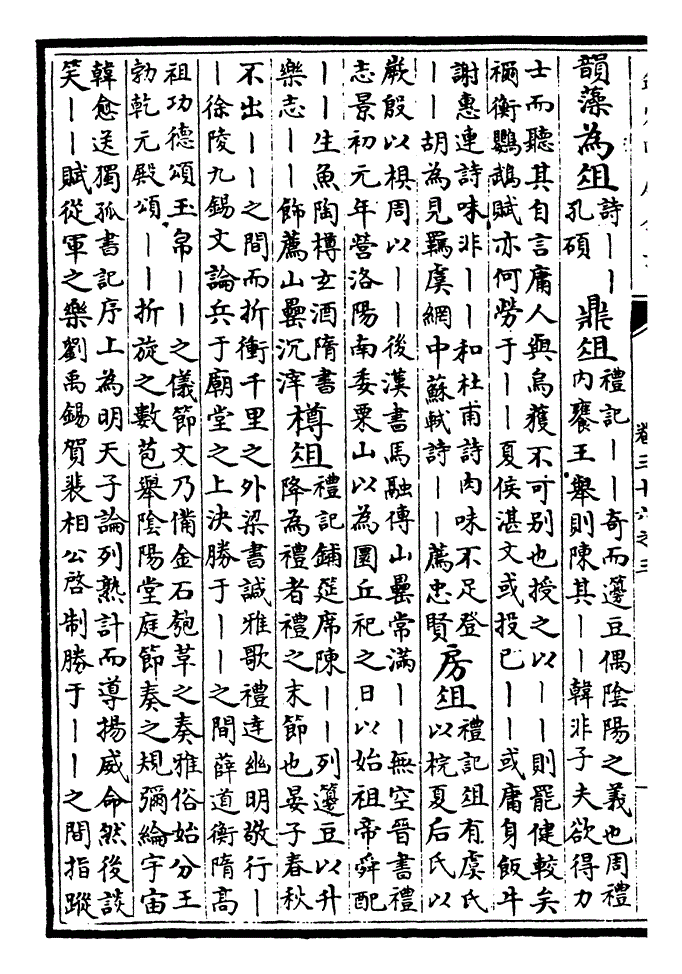 卷三十六之三
韻藻為俎詩——孔碩鼎俎禮記——奇而籩豆偶陰陽之義也周禮
內饔王舉則陳其——韓非子夫欲得力
士而聽其自言庸人與烏獲不可别也授之以——則罷健較矣
禰衡鸚鵡賦亦何勞于——夏侯湛文或投已——或庸身飯牛
謝惠連詩味非——和杜甫詩肉味不足登
——胡為見羈虞網中蘇軾詩——薦忠賢房俎禮記俎有虞氏
以梡夏后氏以
嶡殷以椇周以——後漢書馬融傳山罍常滿——無空晉書禮
志景初元年營洛陽南委粟山以為圜丘祀之日以始祖帝舜配
——生魚陶樽玄酒隋書
樂志——飾薦山罍沉滓樽俎禮記鋪筵席陳——列籩豆以升
降為禮者禮之末節也晏子春秋
不出——之間而折衝千里之外梁書諴雅歌禮達幽明敬行—
—徐陵九錫文論兵于廟堂之上決勝于——之間薛道衡隋高
祖功德頌玉帛——之儀節文乃備金石匏草之奏雅俗始分王
勃乾元殿頌——折旋之數苞舉陰陽堂庭節奏之規彌綸宇宙
韓愈送獨孤書記序上為明天子論列熟計而導揚威命然後談
笑——賦從軍之樂劉禹錫賀裴相公啓制勝于——之間指蹤